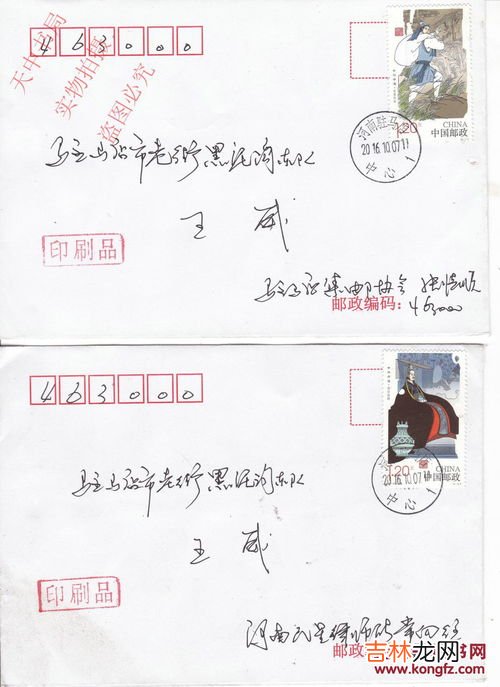 天中书局
实物拍摄
盗图必究
463000
1.20元
CHINA
中国邮政
河南驻马店
2016.10.07 11
中心 1
驻马店市老街黑泥沟东队
王 威
印刷品
驻马店集邮协会 张
邮政编码:
463000
463000
1.20元
CHINA
中国邮政
2016.10.07 11
中心 1
驻马店市老街黑泥沟东队
王 威
印刷品
河南 律师
邮政
书网
吉林龙网
www.kongfz.com